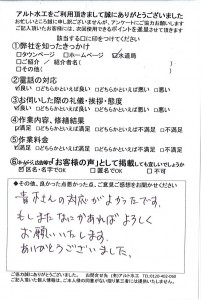 アルト水工をご利用頂きまして誠にありがとうございました
お忙しいところ誠に申し訳ございませんが、アンケートにご協力お願いします
ご記入頂いたお客様には、次回使用できるポイントを進呈させて頂きます
該当する□に印をつけて下さい
①弊社を知ったきっかけ
□タウンページ □ホームページ ☑水道局
□ご紹介 / 紹介者名( )
□その他( )
②電話の対応
☑良い □どちらかといえば良い □どちらかといえば悪い □悪い
③お伺いした際の礼儀・挨拶・態度
☑良い □どちらかといえば良い □どちらかといえば悪い □悪い
④作業内容、修繕結果
☑満足 □どちらかといえば満足 □どちらかといえば不満足 □不満足
⑤作業料金
☑満足 □どちらかといえば満足 □どちらかといえば不満足 □不満足
「お客様の声」として掲載しても宜しいでしょうか
☑区名・名字でOK □匿名でOK □不可
●その他、良かった点悪かった点、ご意見ご感想をお聞かせください
青木さんの対応がよかったです。
もしまたなにかあればよろしく
お願いいたします。
ありがとうございました。
ご協力誠にありがとうございました。 お問合せ先 (有)アルト水工 TEL:0120-402-060
ご記入頂いた個人情報は、ご本人様の同意がない限り第三者には提供いたしません。